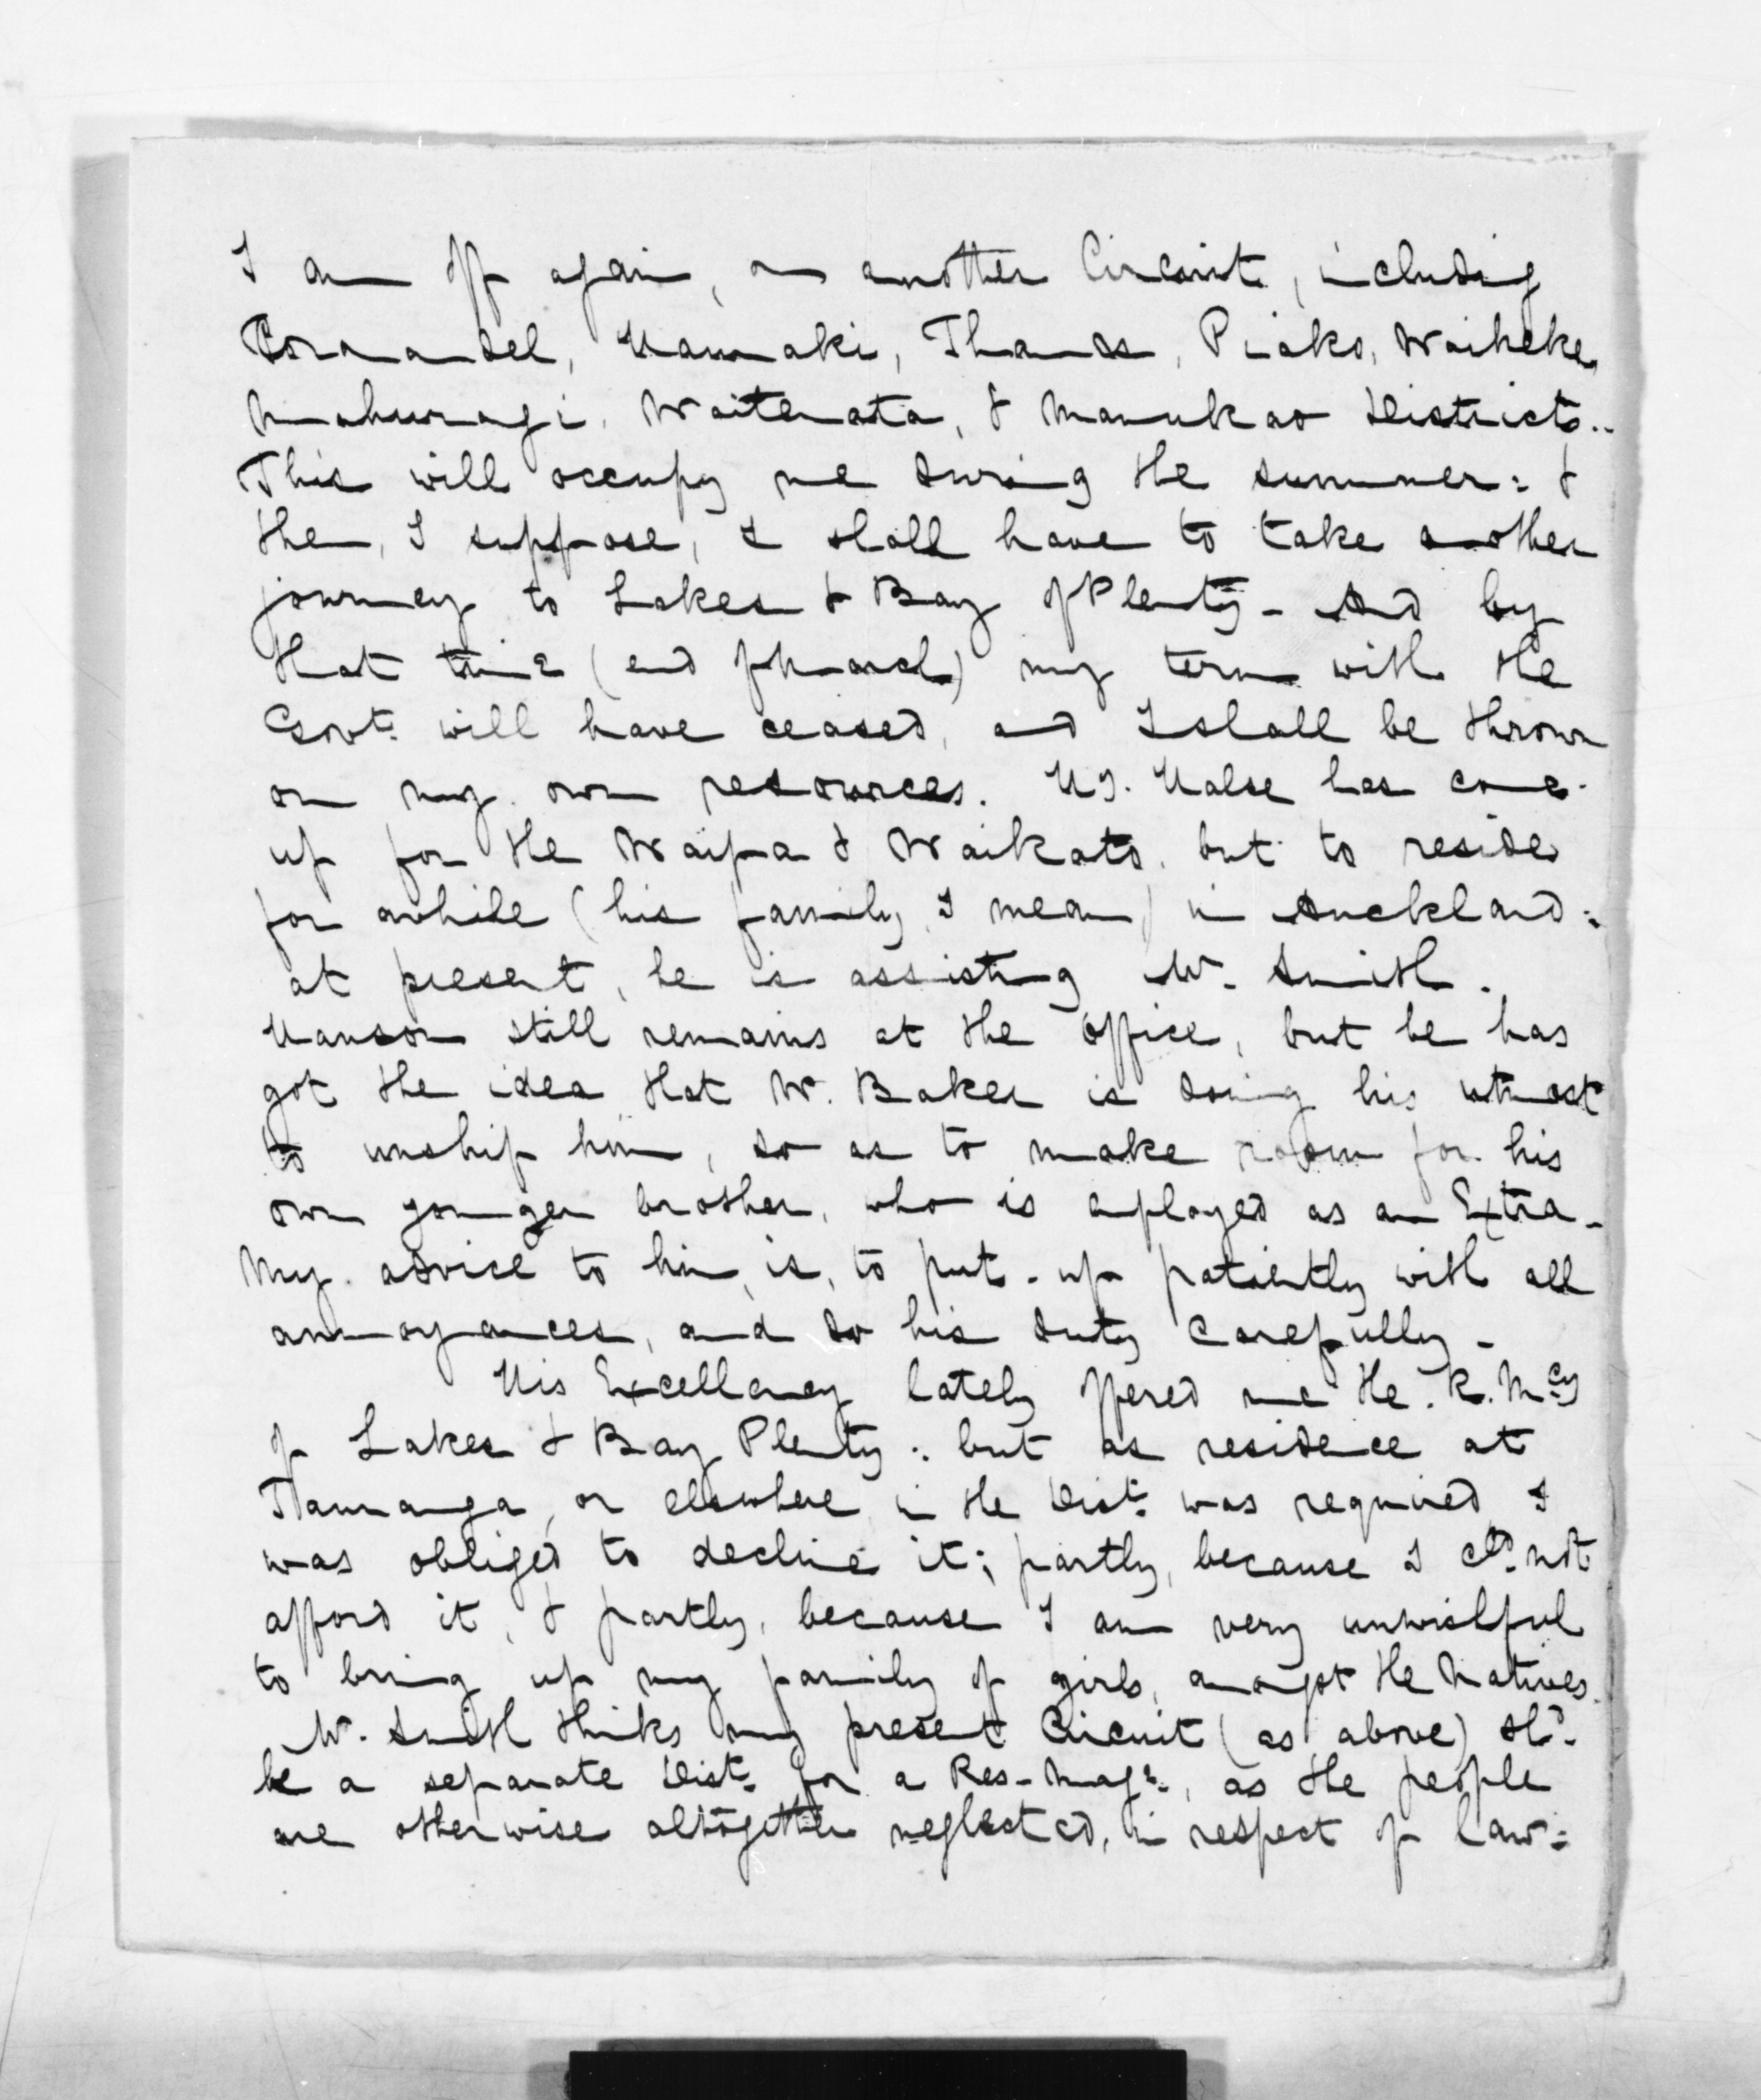 I am off again, on another Circuit, including
Coromandel, Hauraki, Thames, Piako, Waiheke,
Mahurangi, Waitemata, & Manukao Districts..
This will occupy me during the summer: &
then, I suppose, I shall have to take another
journey to Lakes & Bay of Plenty - And by
that time (end of March) my term with the
Govt. will have ceased, and I shall be thrown
on my own resources. Hy. Halse has come
up for the Waipa & Waikato, but to reside
for awhile (his family, I mean) in Auckland:
at present, he is assisting Mr. Smith.
Hanson still remains at the office, but he has
got the idea that Mr. Baker is doing his utmost
to unship him, so as to make room for his
own younger brother, who is employed as an Extra -
My advice to him, is, to put-up patiently with all
annoyances, and do his duty carefully -
His Excellency lately offered me the R. Mcy
of Lakes & Bay Plenty: but as residence at
Tauranga, or elsewhere in the Dist. was required, I
was obliged to decline it; partly, because I cld. not
afford it, & partly, because I am very unwishful
to bring up my family of girls, amongst the Natives.
Mr. Smith thinks my present Circuit (as above) shd.
be a separate Dist. for a Res-Magte., as the people
are otherwise altogether neglected, in respect of law: